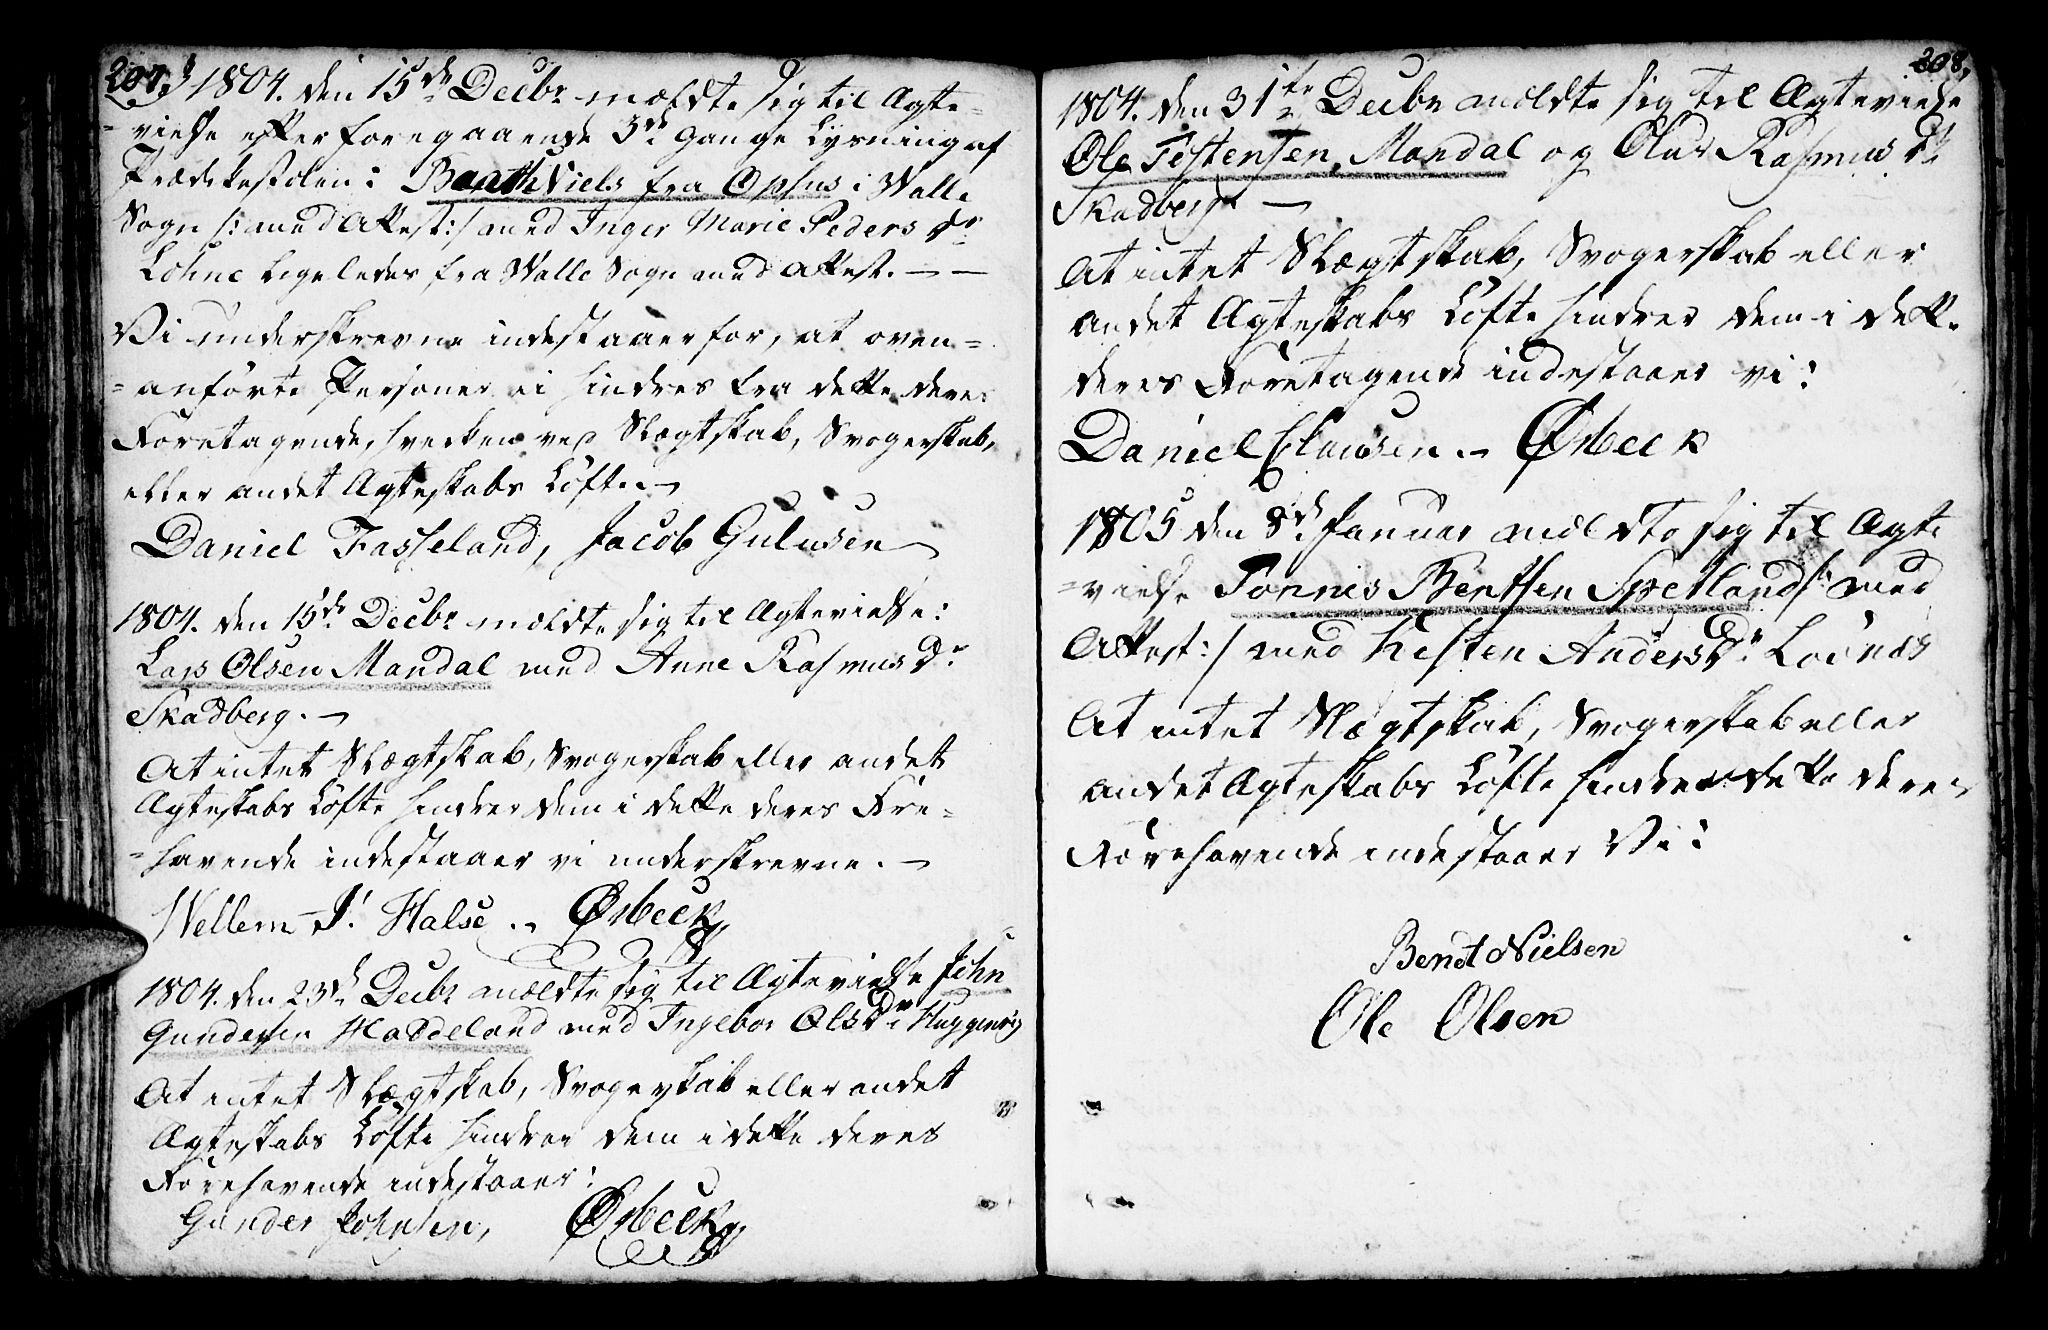 207.
1804. den 15de Decbr meldte sig til Ægte-
-vielse efter foregaaende 3de Gange Lysning af
Prædikestolen: Niels fra Ophus i Walle
Sogn /: med Attest :/ med Inger Marie Peders Dr
Löhne ligeledes fra Walle Sogn med Attest. — —
Vi underskrevne indestaaer for, at oven-
-anförte Personer ei hindres fra dette deres
Foretagende, hverken ved Slægtskab, Svogerskab,
eller andet Ægteskabs Löfte. —
Daniel Fasseland, Jacob Gulusen
1804. den 15de Decbr meldte sig til Ægtevielse:
Lars Olsen Mandal med Anne Rasmus Dr
Skadberg. —
At intet Slægtskab, Svogerskab eller andet
Ægteskabs Löfte hindrer dem i dette deres Fore-
-havende indestaaer vi underskrevne. —
Wellem J. Halse. Ørbeck
1804. den 23de Decbr meldte sig til Ægtevielse John
Gundersen Haddeland med Ingebor Ols Dr
At intet Slægtskab, Svogerskab eller andet
Ægteskabs Löfte hindrer dem i dette deres
Forehavende indestaaer:
Gunder Johnsen, Ørbeck
208.
1804. den 31te Decbr meldte sig til Ægtevielse
Ole Tostensen Mandal og Rasmus Dr
Skadberg —
At intet Slægtskab, Svogerskab eller
andet Ægteskabs Löfte hindrer dem i dette
deres Foretagende indestaaer vi:
Daniel Clausen. — Ørbeck
1805 den 8de Januar meldte sig til Ægte
-vielse Tonnes Bentsen Spetland /: med
Attest :/ med Kisten Anders Dr Loinæs
At intet Slægtskab, Svogerskab eller
andet Ægteskabs Löfte hindre dette deres
Forehavende indestaaer Vi:
Bendt Nielsen
Ole Olsen